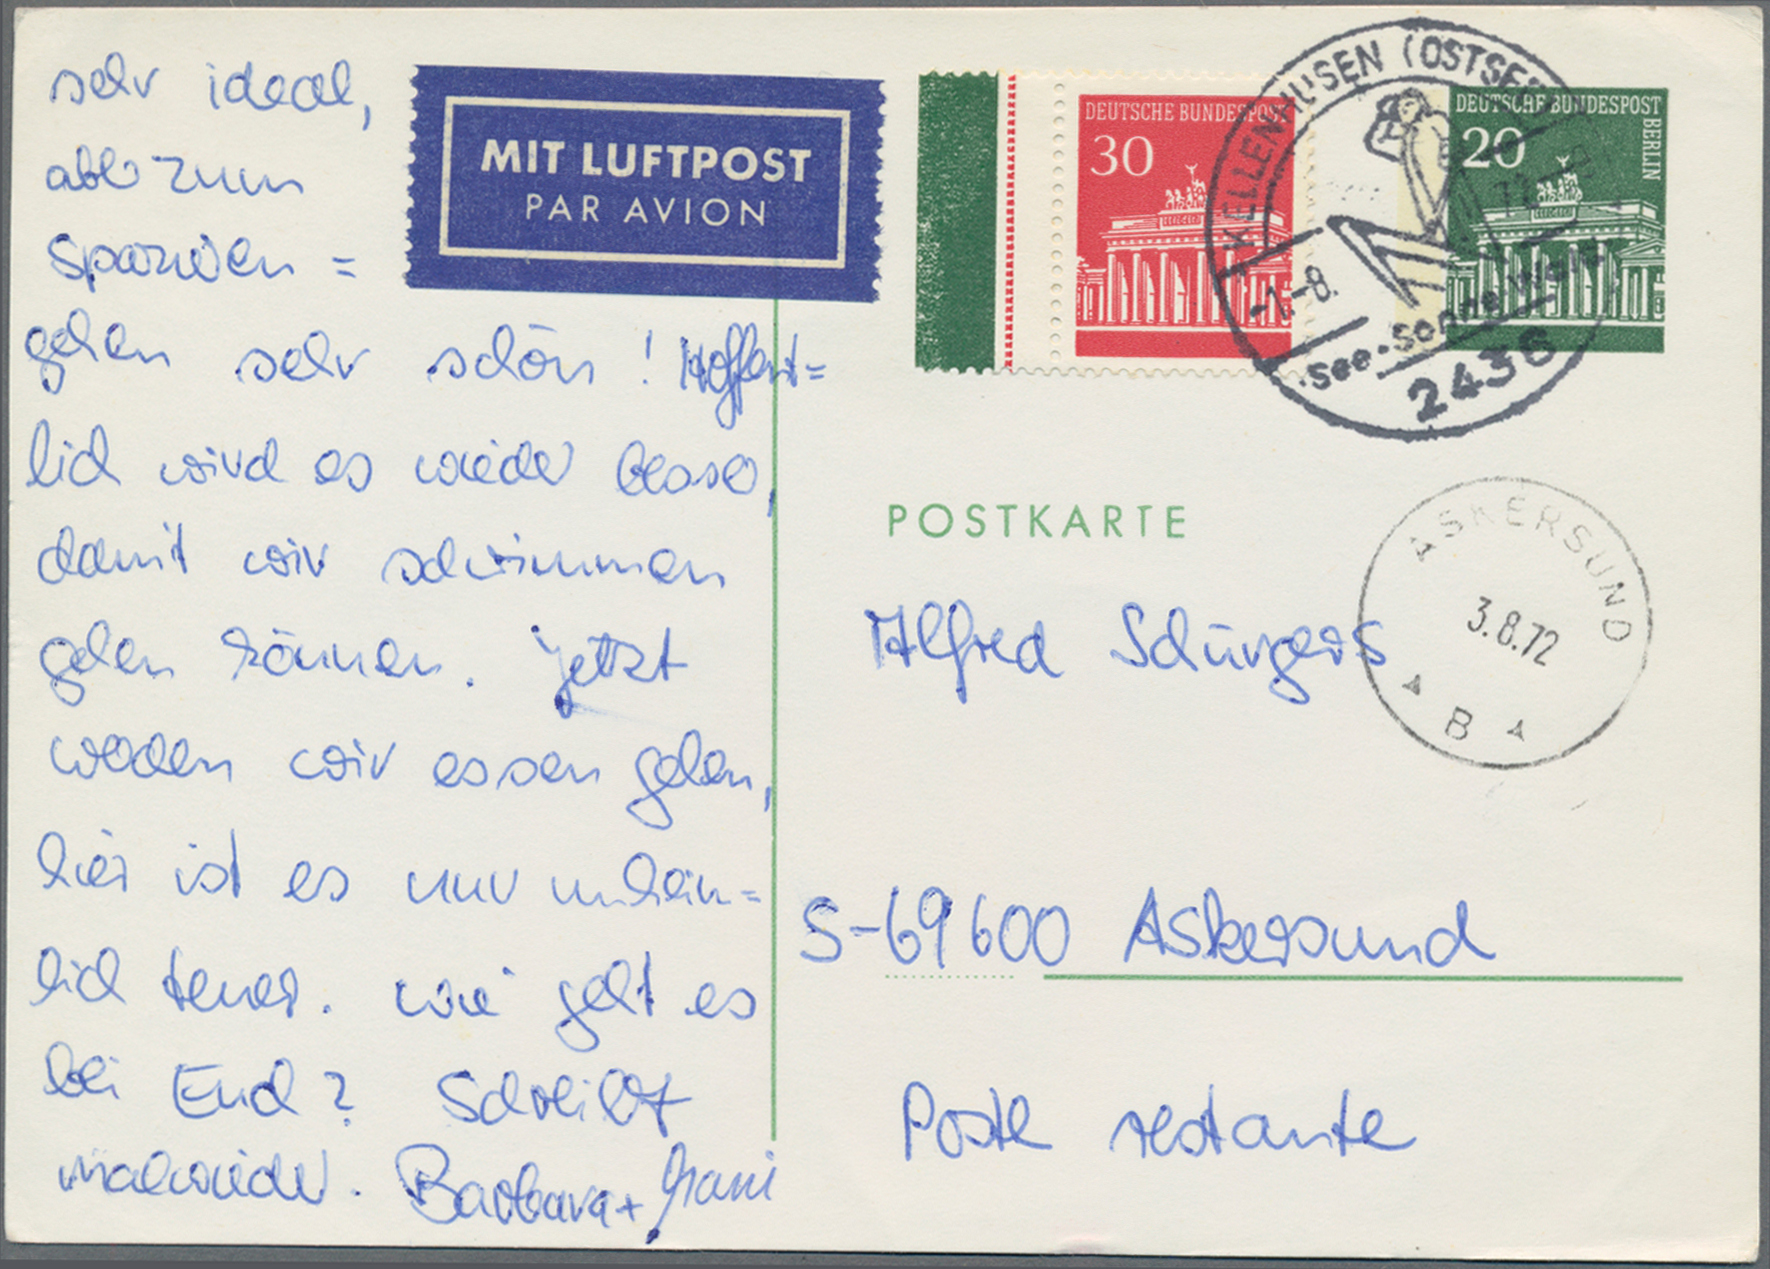 sehr ideal,
aber zum
Spazieren=
gehen sehr schön! Hoffent=
lich wird es wieder besser,
damit wir schwimmen
gehen können. Jetzt
werden wir essen gehen,
hier ist es nur unheim=
lich teuer. Wie geht es
bei Euch? Schreibt
mal wieder. Barbara +
MIT LUFTPOST
PAR AVION
DEUTSCHE BUNDESPOST
30
DEUTSCHE BUNDESPOST
BERLIN
20
KELLENHUSEN (OSTSEE)
-1.-8.
See · Sonne · Wald
2436
POSTKARTE
ASKERSUND
3.8.72
B
Alfred Schürgers
S-69600 Askersund
Poste restante